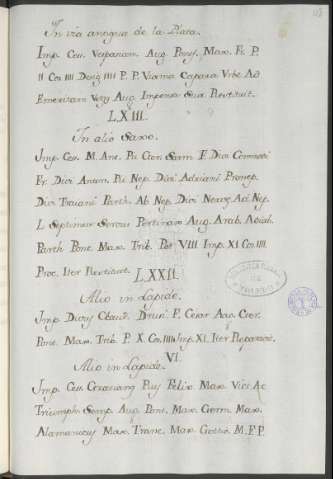 In via antigua de la Plata.
Imp. Ces. Vespasian. Aug. Ponf. Max. Fr. P.
II Cos IIII Desig IIII P. P. Viarma Capara Vrbe Ad
Emeritam Veq Aug. Impensa Sua Restituit.
LXIII.
In alio Saxo.
Imp. Ces. M. Ant. Pii Ger. Sarm F. Divi Commodi
Fr. Divi Anton. Pii Nep. Divi Adriani Pronep.
Divi Traiani Parth. Ab Nep. Divi Nervæ Ad Nep.
L. Septimus Severus Pertinax Aug. Arab. Adiab.
Parth Pont. Max. Trib. Pot VIII Imp XI Cos IIII
Proc. Iter Restituit.
LXXII.
Alio in Lapide.
Imp. Claud. Drusi F. Cesar Aug. Ger.
Pont. Max. Trib. P. X Cos IIII Imp. XI. Iter Reparavit.
VI.
Alio in Lapide.
Imp. Ces. Pius Felix Max. Vict Ac
Triumph. Semp. Aug. Pont. Max. Germ. Max.
Max. Franc. Max. Gottic. M. F. P.